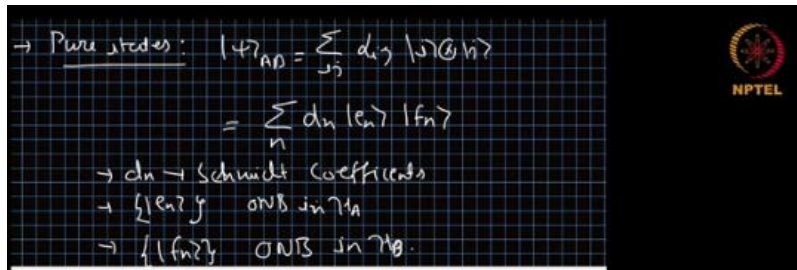 → Pure states: |ψ⟩_AB = Σ_ij α_ij |i⟩⊗|j⟩
= Σ_n d_n |e_n⟩ |f_n⟩
→ d_n → Schmidt Coefficients
→ {|e_n⟩} ONB in ℋ_A
→ {|f_n⟩} ONB in ℋ_B.
NPTEL